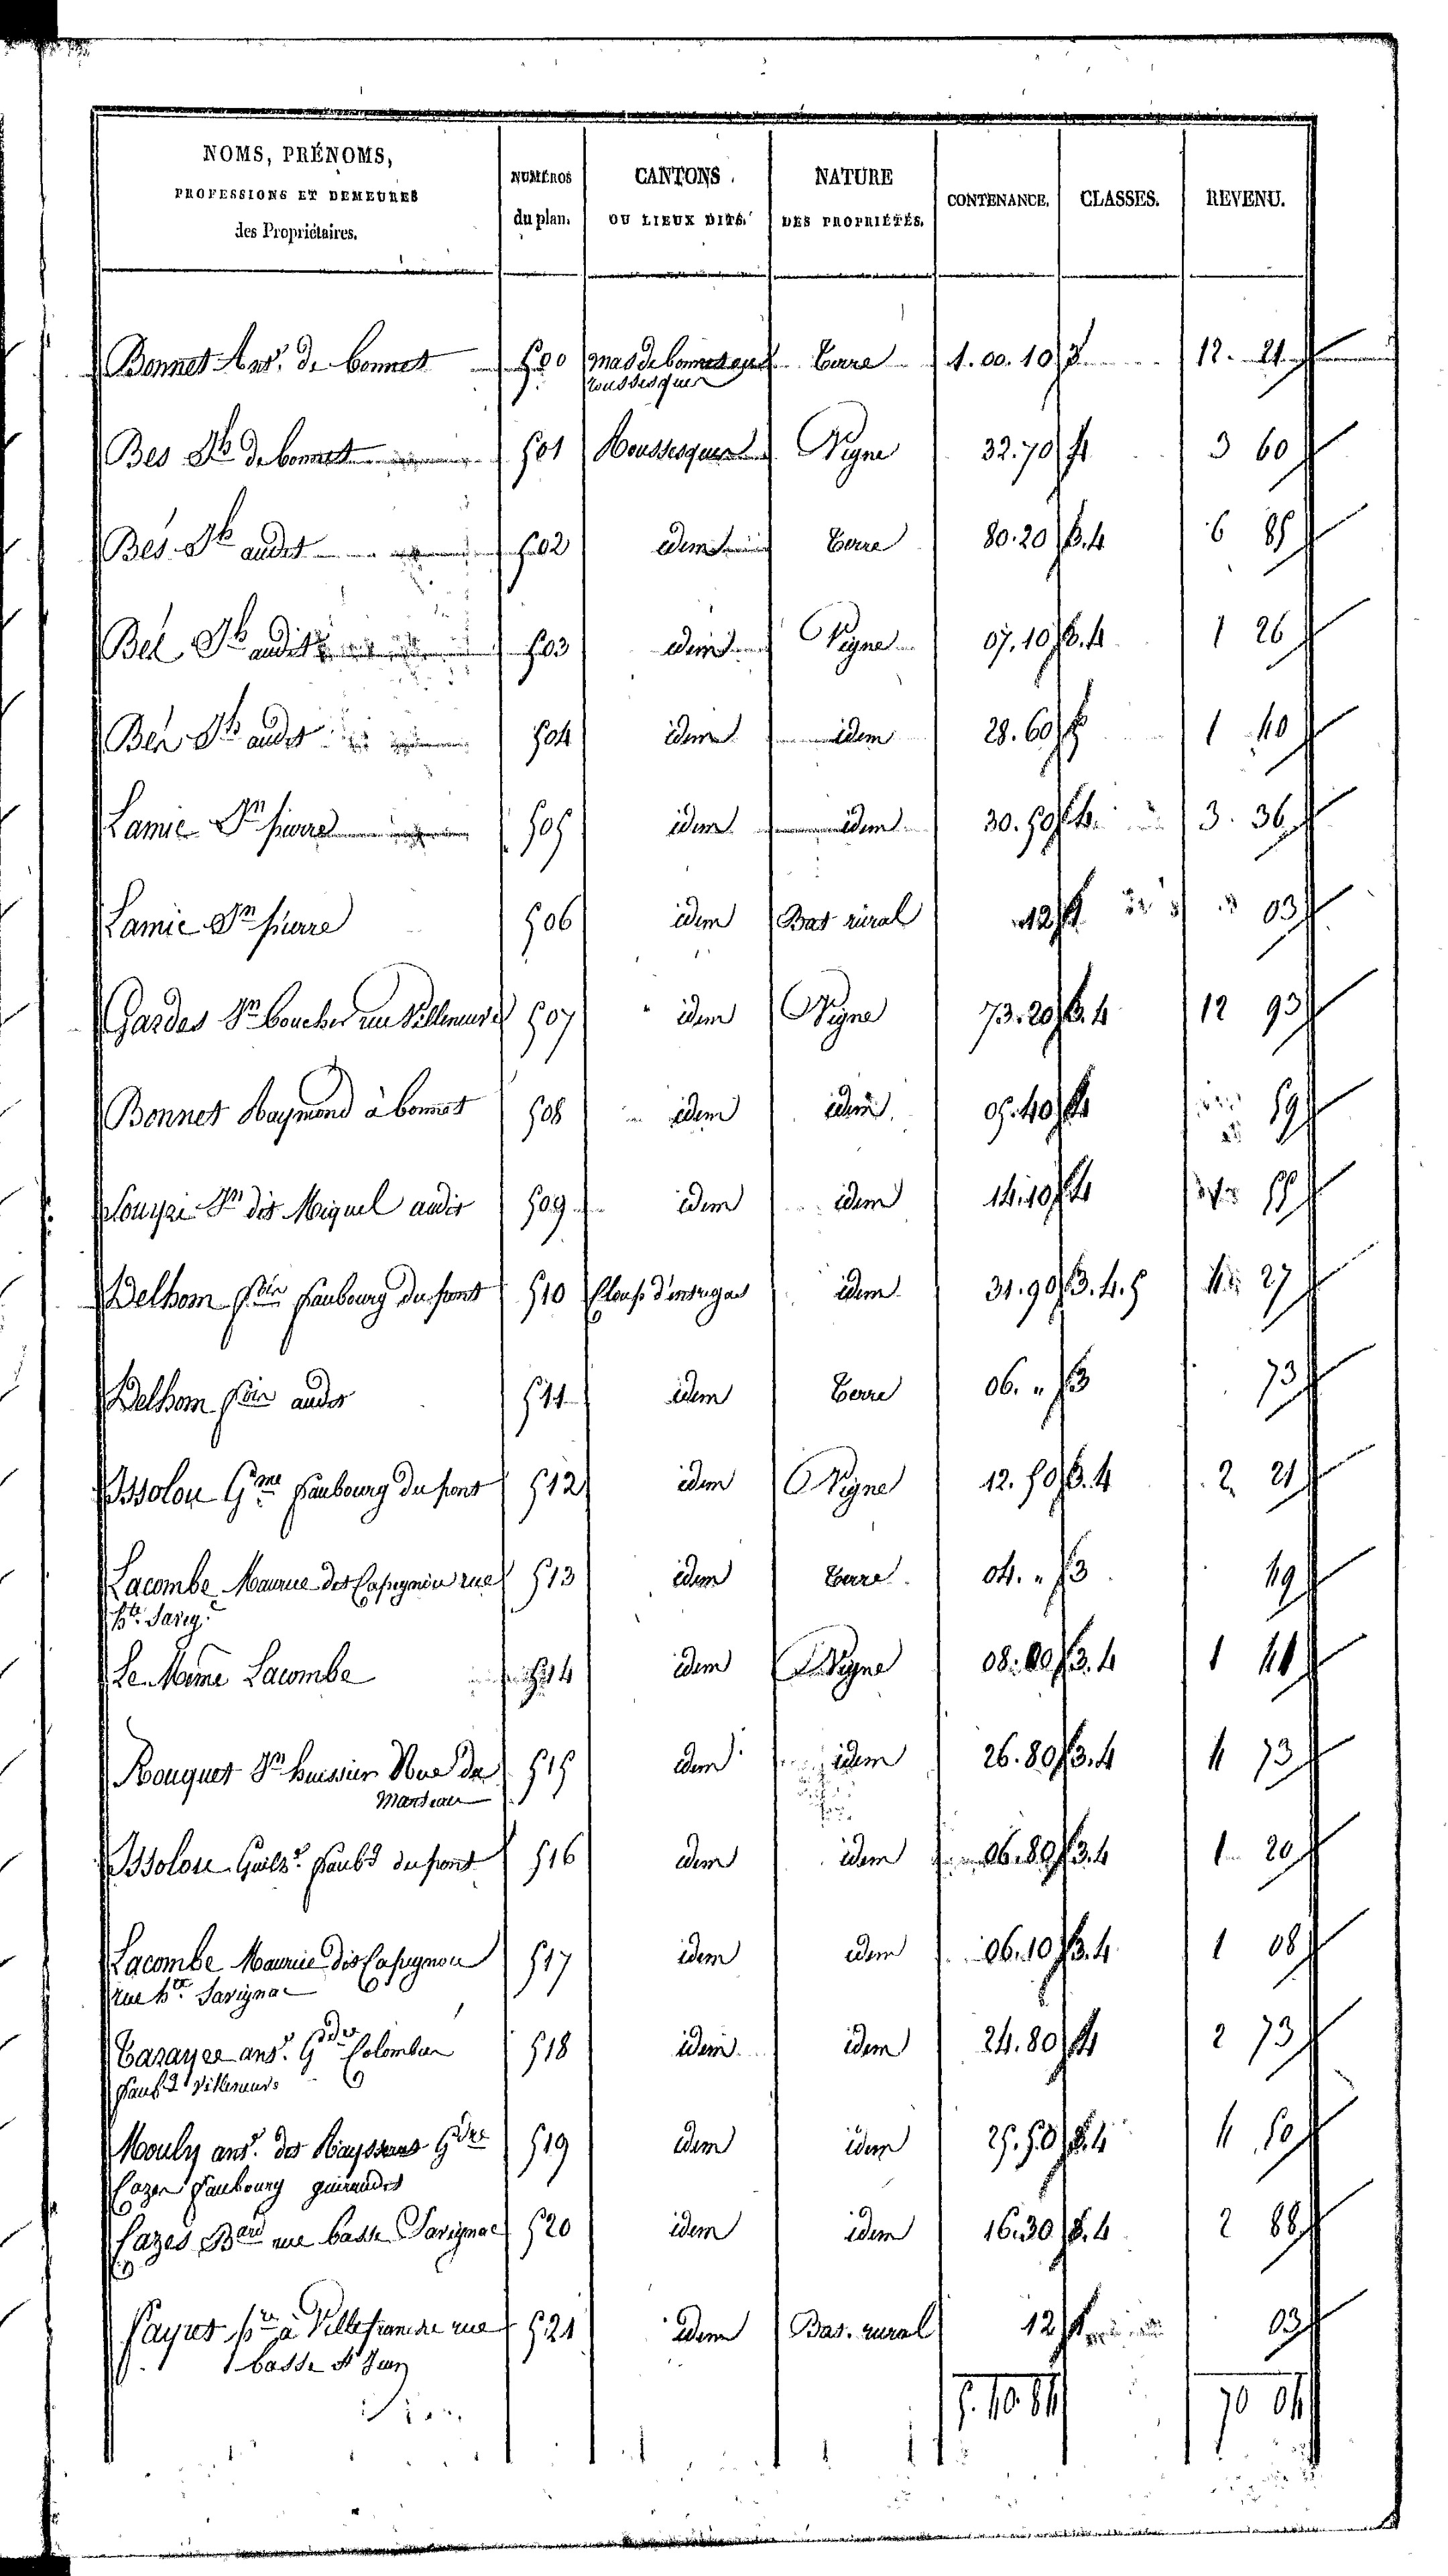 NOMS, PRÉNOMS, PROFESSIONS ET DEMEURES des Propriétaires. | NUMÉROS du plan. | CANTONS OU LIEUX DITS. | NATURE DES PROPRIÉTÉS. | CONTENANCE. | CLASSES. | REVENU.
Bonnet Ant. de bonnet 500 mas de bonnet Terre 1.00.10 3 12. 21
Bes Jh de bonnet 501 Roussesques Vigne 32.70 4 3 60
Bes Jh audit 502 idem Terre 80.20 3.4 6 85
Bes Jh audit 503 idem Vigne 07.10 3.4 1 26
Bes Jh audit 504 idem idem 28.60 5 1 40
Lamic Jn pierre 505 idem idem 30.50 4 3. 36
Lamic Jn pierre 506 idem Bat rural 12 1 03
Gardes Jn boucher rue Villeneuve 507 idem Vigne 73.20 3.4 12 93
Bonnet Raymond à bonnet 508 idem idem 05.40 4 59
Jn dit Miquel audit 509 idem idem 14.10 4 55
Delhom faubourg du pont 510 d'entrigas idem 31.90 3.4.5 4 27
Delhom audit 511 idem Terre 06. " 3 73
Issolou Gme faubourg du pont 512 idem Vigne 12.50 3.4 2 21
Lacombe Maurice dit Capignou rue 513 idem Terre 04. " 3 49
hte Savig.
Le Meme Lacombe 514 idem Vigne 08.00 3.4 1 41
Rouquet Jn huissier Rue du 515 idem idem 26.80 3.4 4 73
Marteau
Issolou faubg du pont 516 idem idem 06.80 3.4 1 20
Lacombe Maurice dit Capignou 517 idem idem 06.10 3.4 1 08
rue hte Savignac
ant. Gdre Colombier 518 idem idem 24.80 4 2 73
faubg Villeneuve
Mouly ant. Gdre 519 idem idem 25.50 3.4 4 50
Cazes faubourg guiraudet
Cazes Bard rue basse Savignac 520 idem idem 16.30 3.4 2 88
Payret pre à Villefranche rue 521 idem Bat. rural 12 1 03
basse St Jean
5.40.84 70 04